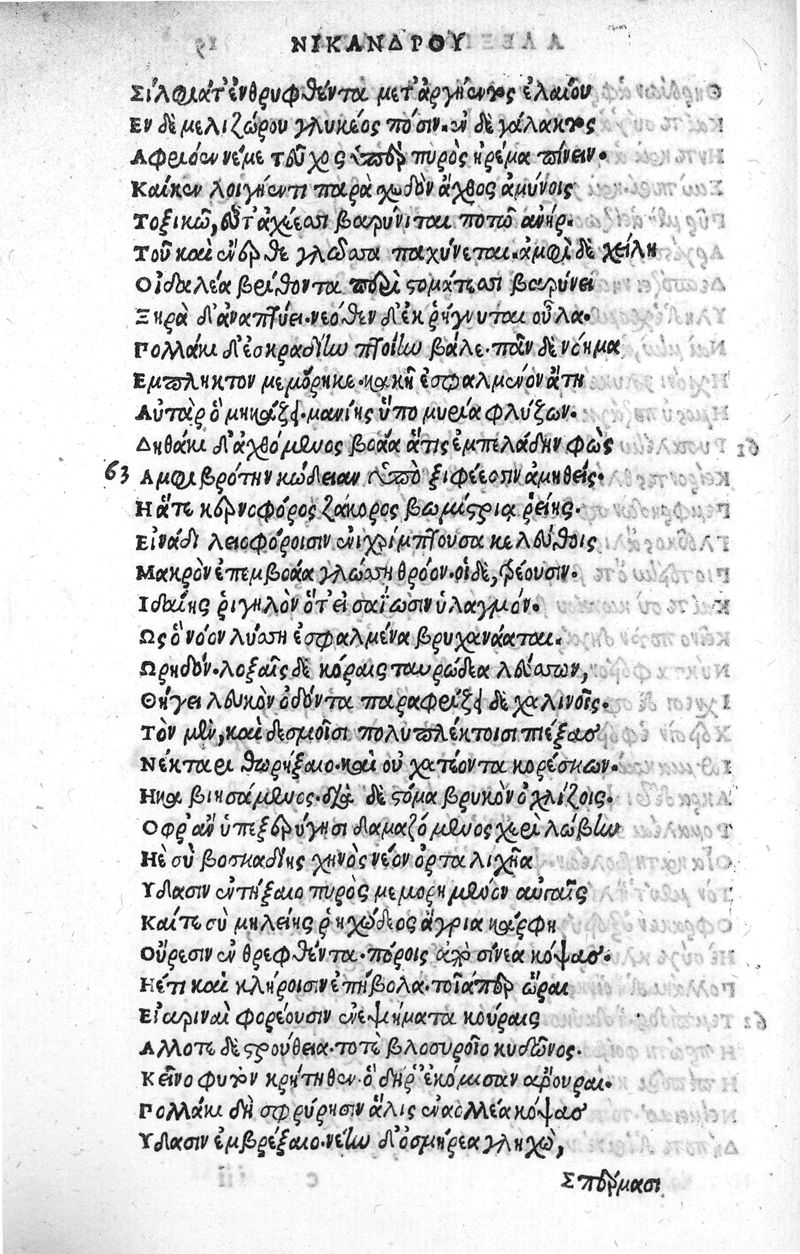 ΝΙΚΑΝΔΡΟΥ
Σίλφια τ' ἐνθρυφθέντα μετ' ἀργήεντος ἐλαίου
Εν δὲ μελιζώρου γλυκέος πόσιν. ἐν δὲ γάλακτος
Αφριόεν νέμε τεῦχος ὑπὲρ πυρὸς ἠρέμα πίνειν.
Καίκεν λοιγήεντι παρὰ χεδὸν ἄχθος ἀμύνοις
Τοξικῷ, εὖτ' ἀχέεσσι βαρύνηται ποτῷ ἀνήρ.
Τοῦ καὶ ἔνερθε γλῶσσα παχύνεται. ἀμφὶ δὲ χείλη
Οἰδαλέα βρίθοντα περὶ στομάτεσσι βαρύνει
Ξηρὰ δ' ἀναπτύει. νεόθεν δ' ἐκ ῥήγνυται οὖλα.
Πολλάκι δ' ἐσκραδίην πτοίην βάλε. πᾶν δὲ νόημα
Εμπληκτον μεμόρηκε. κακῇ ἐσφαλμένον ἄτῃ
Αὐτὰρ ὁ μηκάζει. μανίης ὕπο μυρία φλύζων.
Δηθάκι δ' ἀχθόμενος βοάᾳ ἅτις ἐμπελάδην φὼς
63 Αμφιβρότην κώδειαν ἀπὸ ξιφέεσσιν ἀμηθείς.
Η ἅτε κερνοφόρος ζάκορος βωμίστρια ῥείης.
Εἰνάδι λειοφόροισιν ἐνιχρίμπτουσα κελεύθοις
Μακρὸν ἐπεμβοάα γλώσσῃ θρόον. οἱ δὲ, τρέουσιν.
Ιδαίης ῥιγηλὸν ὅτ' εἰσαΐωσιν ὑλαγμόν.
Ως ὁ νόον λύσσῃ ἐσφαλμένα βρυχανάαται.
Ωρηδόν. λοξαῖς δὲ κόραις ταυρώδεα λεύσσων,
Θήγει λευκὸν ὀδόντα παραφρίζει δὲ χαλινοῖς.
Τὸν μὲν, καὶ δεσμοῖσι πολυπλέκτοισι πιέξας
Νέκταρι θωρήξαιο. καὶ οὐ χατέοντα κορέσκων.
Ηκα βιησάμενος. διὰ δὲ στόμα βρυκὸν ὀχλίζοις.
Οφρ' ἂν ὑπεξερύγῃσι δαμαζόμενος χερὶ λώβην
Ηὲ σὺ βοσκαδίης χηνὸς νέον ὀρταλιχῆα
Υδασιν ἐντήξαιο πυρὸς μεμορημένον αὐγαῖς
Καίτε σὺ μηλείης ῥηχώδεος ἄγρια κάρφη
Οὔρεσιν ἐνθρεφθέντα. πόροις ἀπὸ σίνεα κόψας.
Ηέτι καὶ κλήροισιν ἐπήβολα. τοῖάπερ ὧραι
Εἰαριναὶ φορέουσιν ἐνεψήματα κούραις
Αλλοτε δὲ στρούθεια. τοτὲ βλοσυροῖο κυδῶνος.
Κεῖνο φυτὸν κρήτηθεν. ὁ δήῤ' ἐκόμισαν ἄρουραι.
Πολλάκι δὴ σφρύρῃσιν ἅλις ἐναολλέα κόψας
Υδασιν ἐμβρέξαιο. νέην δ' ὀσμήρεα γληχὼ,
Σπέρμασι